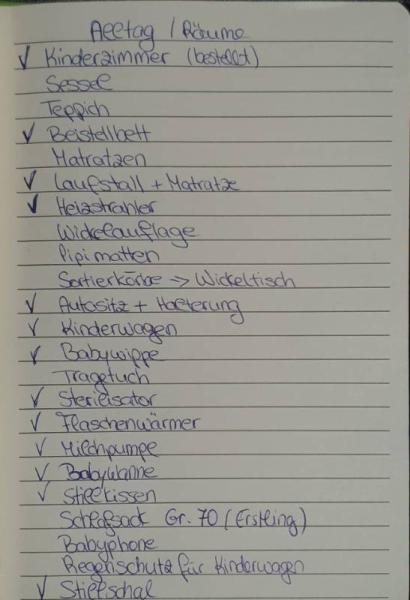 Alltag / Räume
✓ Kinderzimmer (bestellt)
Sessel
Teppich
✓ Beistellbett
Matratzen
✓ Laufstall + Matratze
✓ Heizstrahler
Wickelauflage
Pipimatten
Sortierkörbe → Wickeltisch
✓ Autositz + Halterung
✓ Kinderwagen
✓ Babywippe
Tragetuch
✓ Sterilisator
✓ Flaschenwärmer
✓ Milchpumpe
✓ Babywanne
✓ Stillkissen
Schlafsack Gr. 70 (Erstling)
Babyphone
Regenschutz für Kinderwagen
✓ Stillschal